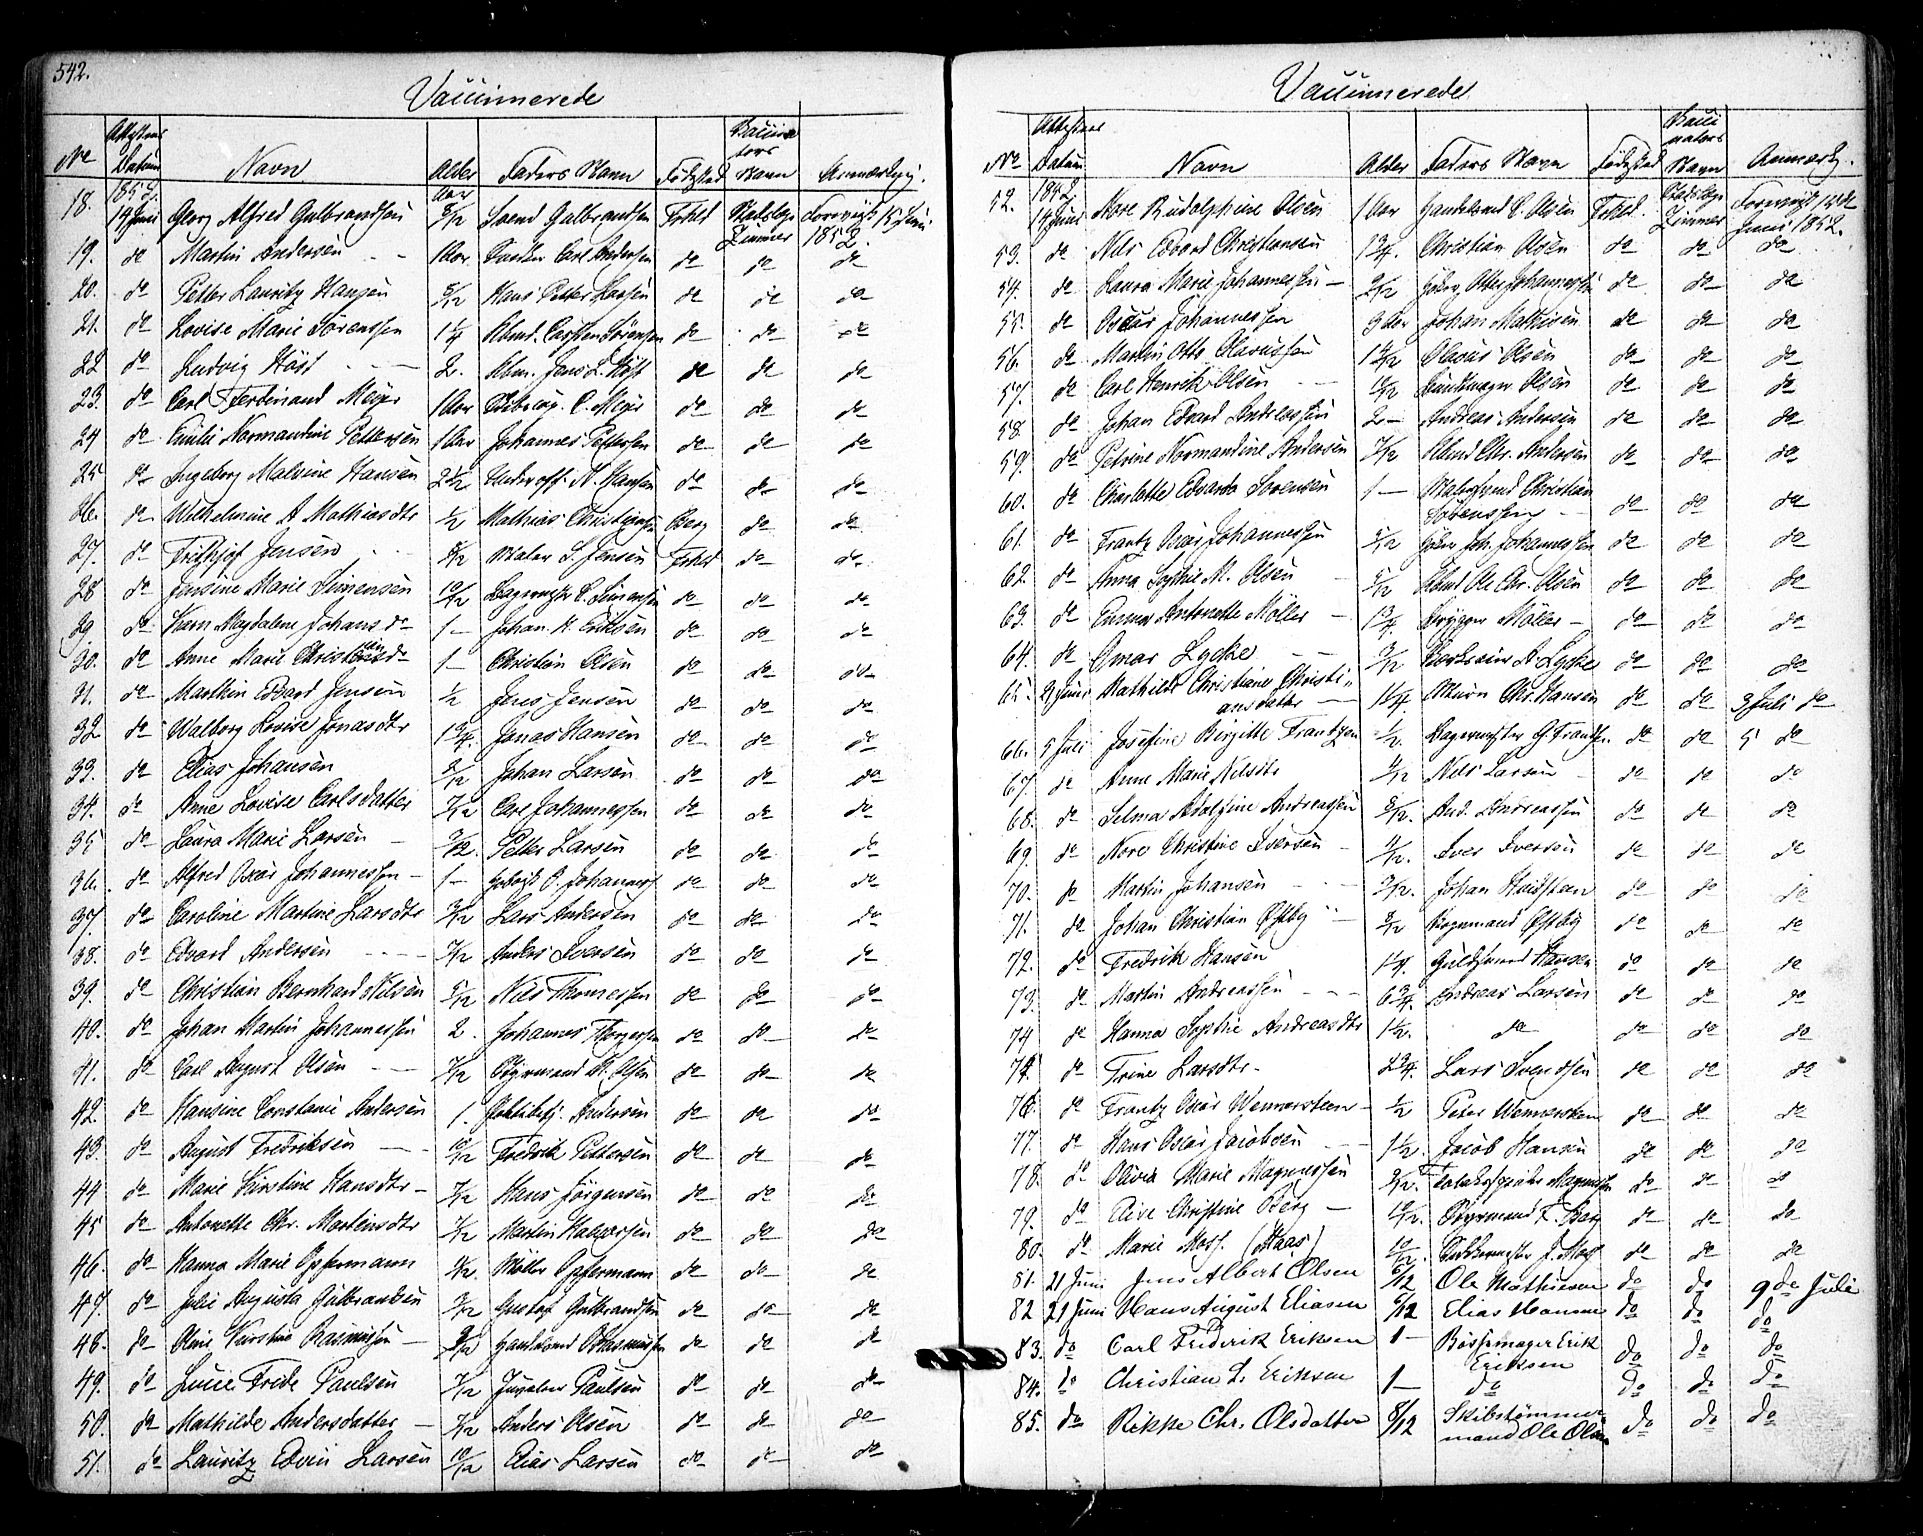 542.
Vaccinerede
No Attestens Datum Navn Alder Faders Navn Fødested Vaccinators Navn Anmærkng.
1852. Aar
18. 14 Juni Georg Alfred Gulbrandsen 8/12 Svend Gulbrandsen Frhld Stadslege Zimmer Forevist 15 Juni 1852.
19. do Martin Andersen 1 Aar Carl Andersen do do do
20. do Petter Lauritz Hansen 5/12 Hans Petter Larsen do do do
21. do Lovise Marie Sørenssen 1 1/4 Abmd. Carsten Sørensen do do do
22 do Ludvig Høst 2. Abm. Jens L. Høst do do do
23. do Carl Ferdinand Meyer 1 Aar C. Meyer do do do
24 do Emilie Normandine Pettersen 1 Aar Johannes Pettersen do do do
25 do Ingeborg Malvine Hansen 2 1/2 Underoff. N. Hansen do do do
26. do Wilhelmine A Mathiasdtr 1/2 Mathias Christiansen Berg do do
27. do Frithjof Jensen 8/12 Maler S. Jensen Frhld do do
28 do Jensine Marie Simensen 10/12 Bagermstr C. Simensen do do do
29. do Karn Magdalene Johansdr 1 — Johan H. Eriksen do do do
30. do Anne Marie Christiansdr 1 — Christian Olsen do do do
31. do Marthin Edvard Jensen 1/2 Jens Jensen do do do
32 do Walborg Lovise Jonasdtr 1 3/4. Jonas Hansen do do do
33. do Elias Johansen 8/12 Johan Larsen do do do
34. do Anne Lovise Carlsdatter 7/12 Carl Johannessen do do do
35 do Laura Marie Larsen 3/12. Petter Larsen do do do
36. do Alfred Oscar Johannessen 1 — P. Johannes do do do
37. do Caroline Martine Larsdtr 3/12 Lars Andersen do do do
38. do Edvard Andersen 7/12 Anders Iversen do do do
39. do Christian Bernhard Nilsen 5/12 Nils Thomessen do do do
40. do Johan Martin Johannessen 2. Johannes Thorgersen do do do
41. do Carl August Olsen 7/12 Bøgsmand N. Olsen do do do
42. do Hansine Constanse Andersen 1. Andersen do do do
43. do August Fredriksen 10/12 Fredrik Pettersen do do do
44 do Marie Kirstine Hansdtr 7/12 Hans Jørgensen do do do
45 do Antonette Chr. Martinsdtr 7/12 Martin Halvorsen do do do
46. do Hanna Marie Oppermann 4/12. Møller Oppermann do do do
47 do Julie Augusta Gulbrandsen 3/12 Gustaf Gulbrandsen do do do
48. do Oline Kirstine Rasmussen 9/12 Handelsmd O Rasmussen do do do
49. do Lucie Fride Paulsen 7/12 Juveler Paulsen do do do
50. do Mathilde Andersdatter 7/12 Anders Olsen do do do
51. do Lauritz Edvin Larsen 10/12 Elias Larsen do do do
Vaccinerede
No Attestens Datum Navn Alder Faders Navn Fødested Vaccinators Navn Anmærkg.
1852
52. 14 Juni Nore Rudolphine Olsen 1 Aar Handelsmd C. Olsen Frhld. Stadslege Zimmer Forevist 15de Juni 1852.
53. do Nils Edvard Christiansen 1 3/4. Christian Olsen do do do
54. do Laura Marie Johannessen 2/12 Otter Johannessen do do do
55. do Oscar Johannessen 3 Aar Johan Mathisen do do do
56. do Martin Otto Olaussen 1 4/12 Olaus Olsen do do do
57. do Carl Henrik Olsen 10/12 Olsen do do do
58. do Johan Edvard Andreassen 2 — Andreas Andersen do do do
59. do Petrine Normandine Andersen 7/12 Abmd Chr. Andersen do do do
60. do Charlotte Edvarda Sørensen 1 — Christian
Sørenssen do do do
61. do Frantz Oscar Johannessen 5/12 Joh. Johannessen do do do
62. do Anna Sophie M. Olsen 5/12 Abmd Ole Chr. Olsen do do do
63. do Emma Antonette Møller 1 3/4. Brygger Møller do do do
64. do Omar Lycke 3/12 A. Lycke do do do
65. 21 Juni Mathilde Christiane Christi-
ansdatter 1 1/4. Chr. Hansen do do 3 Juli do
66. 5 Juli Josefine Birgitte Frantzen 1/2. Bagermester G Frantzen do do 5 do
67. do Anne Marie Nilsdtr 4/12 Nils Larsen do do do
68. do Selma Adolfine Andreassen 8/12. And. Andreassen do do do
69 do Nore Christine Iversen 4/12. Iver Iversen do do do
70. do Martin Johansen 3/12. Johan do do do
71. do Johan Christian Østby 8/12 Bøgsmand Østby do do do
72. do Fredrik Hansen 1 1/4. Guldsmed Hansen do do do
73. do Martin Andreassen 6 3/4. Andreas Larsen do do do
74 do Hanna Sophie Andreasdtr 1 1/2. do do do do
75. do Trine Larsdtr. 2 3/4. Lars Svendsen do do do
76. do Frantz Oscar Wennersteen 1/2 Peter Wennersteen do do do
77. do Hans Oscar Jacobsen 1 1/2. Jacob Hansen do do do
78. do Olivia Marie Magnussen 3/12. Magnussen do do do
79. do Aive Christine Berg 10/12. Bøgsmand F. Berg do do do
80. do Marie Moss. (Haas) 10/12. J. Moss do do do
81. 21 Juni Jens Albert Olsen 6/12 Ole Mathiesen do do 9de Juli
82 21 Juni Hans August Eliasen 6/12 Elias Hansen do do do
83. do Carl Frederik Eriksen 1 — Bøssemager Erik
Erikssen do do do
84. do Christian L. Eriksen 1 — do do do do
85. do Rikke Chr. Olsdatter 8/12 Skibstømmer-
mand Ole Olsen do do do